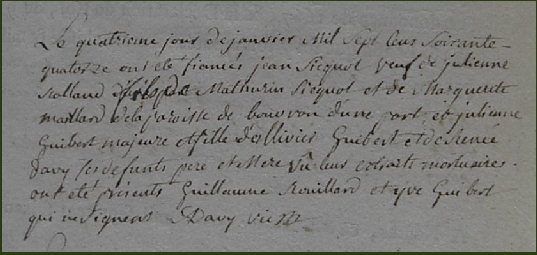 Le quatrieme jour de janvier Mil Sept Cens Soixante-
quatorze ont eté fiancés jean Sicquot veuf de julienne
Rolland fils de Mathurin Sicquot et de Marguerite
maillard de la paroisse de bouvron d'une part, et julienne
Guibert majeure et fille d'ollivier Guibert et de Renée
davy ses defunts pere et Mere vû leur extraits mortuaires.
ont eté présents Guillaume Rouillard et yve Guibert
qui ne signent Davy vic